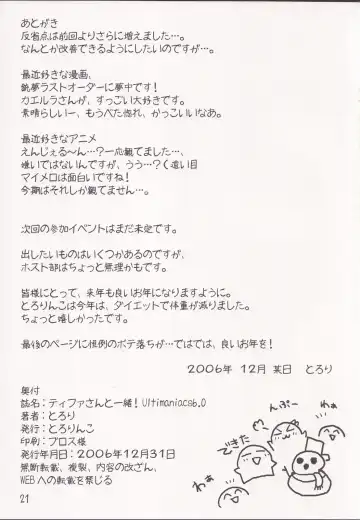 あとがき
反省点は前回よりさらに増えました…。
なんとか改善できるようにしたいのですが…。
最近好きな漫画、
銃夢ラストオーダーに夢中です!
カエルラさんが、すっごい大好きです。
素晴らしいー、もうべた惚れ、かっこいいなあ。
最近好きなアニメ
えんじぇる〜ん…?一応観てました…、
嫌いではないんですが、うう…?(遠い目
マイメロは面白いですね!
今期はそれしか観てません…。
次回の参加イベントはまだ未定です。
出したいものはいくつかあるのですが、
ホスト部はちょっと無理かもです。
皆様にとって、来年も良いお年になりますように。
とろりんこは今年は、ダイエットで体重が減りました。
ちょっと嬉しかったです。
最後のページに恒例のボテ落ちが…ではでは、良いお年を!
2006年 12月 某日 とろり
奥付
誌名:ティファさんと一緒!Ultimaniacs6.0
著者:とろり
発行:とろりんこ
印刷:プロス様
発行年月日:2006年12月31日
無断転載、複製、内容の改ざん、
WEBへの転載を禁じる
わぁ
できた
んぷー
わぁ
21